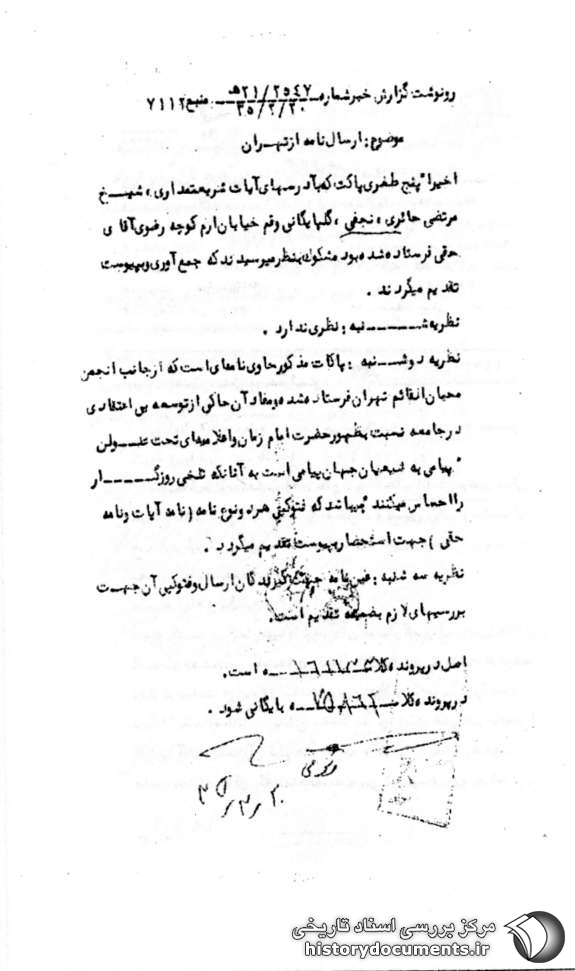 رونوشت گزارش خبر شماره ۲۵۴۷/۲۱ه منبع ۷۱۱۲
۳۵/۲/۳۰
موضوع: ارسال نامه از تهران
اخیرا" پنج طغری پاکت که بآدرسهای آیات شریعتمداری، شیخ
مرتضی حائری، نجفی، گلپایگانی و قم خیابان ارم کوچه رضوی آقای
حقی فرستاده شده بود مشکوک بنظر میرسیدند که جمع آوری و بپیوست
تقدیم میگردند.
نظریه شنبه: نظری ندارد.
نظریه دوشنبه: پاکات مذکور حاوی نامه‌ای است که از جانب انجمن
محبان القائم شهران فرستاده شده و مفاد آن حاکی از توسعه بی اعتقادی
در جامعه نسبت بظهور حضرت امام زمان و اعلامیه‌ای تحت عنوان
"پیامی به شیعیان جهان پیامی است به آنانکه تلخی روزگار
را احساس میکنند" میباشد که فتوکپی هر دو نوع نامه (نامه آیات و نامه
حقی) جهت استحضار بپیوست تقدیم میگردد.
نظریه سه شنبه: عین نامه جهت گیرندگان ارسال و فتوکپی آن جهت
بررسیهای لازم بضمیمه تقدیم است.
اصل در پرونده کلاسه است.
در پرونده کلاسه بایگانی شود.
۳۵٫۳٫۲۰
مرکز بررسی اسناد تاریخی
historydocuments.ir